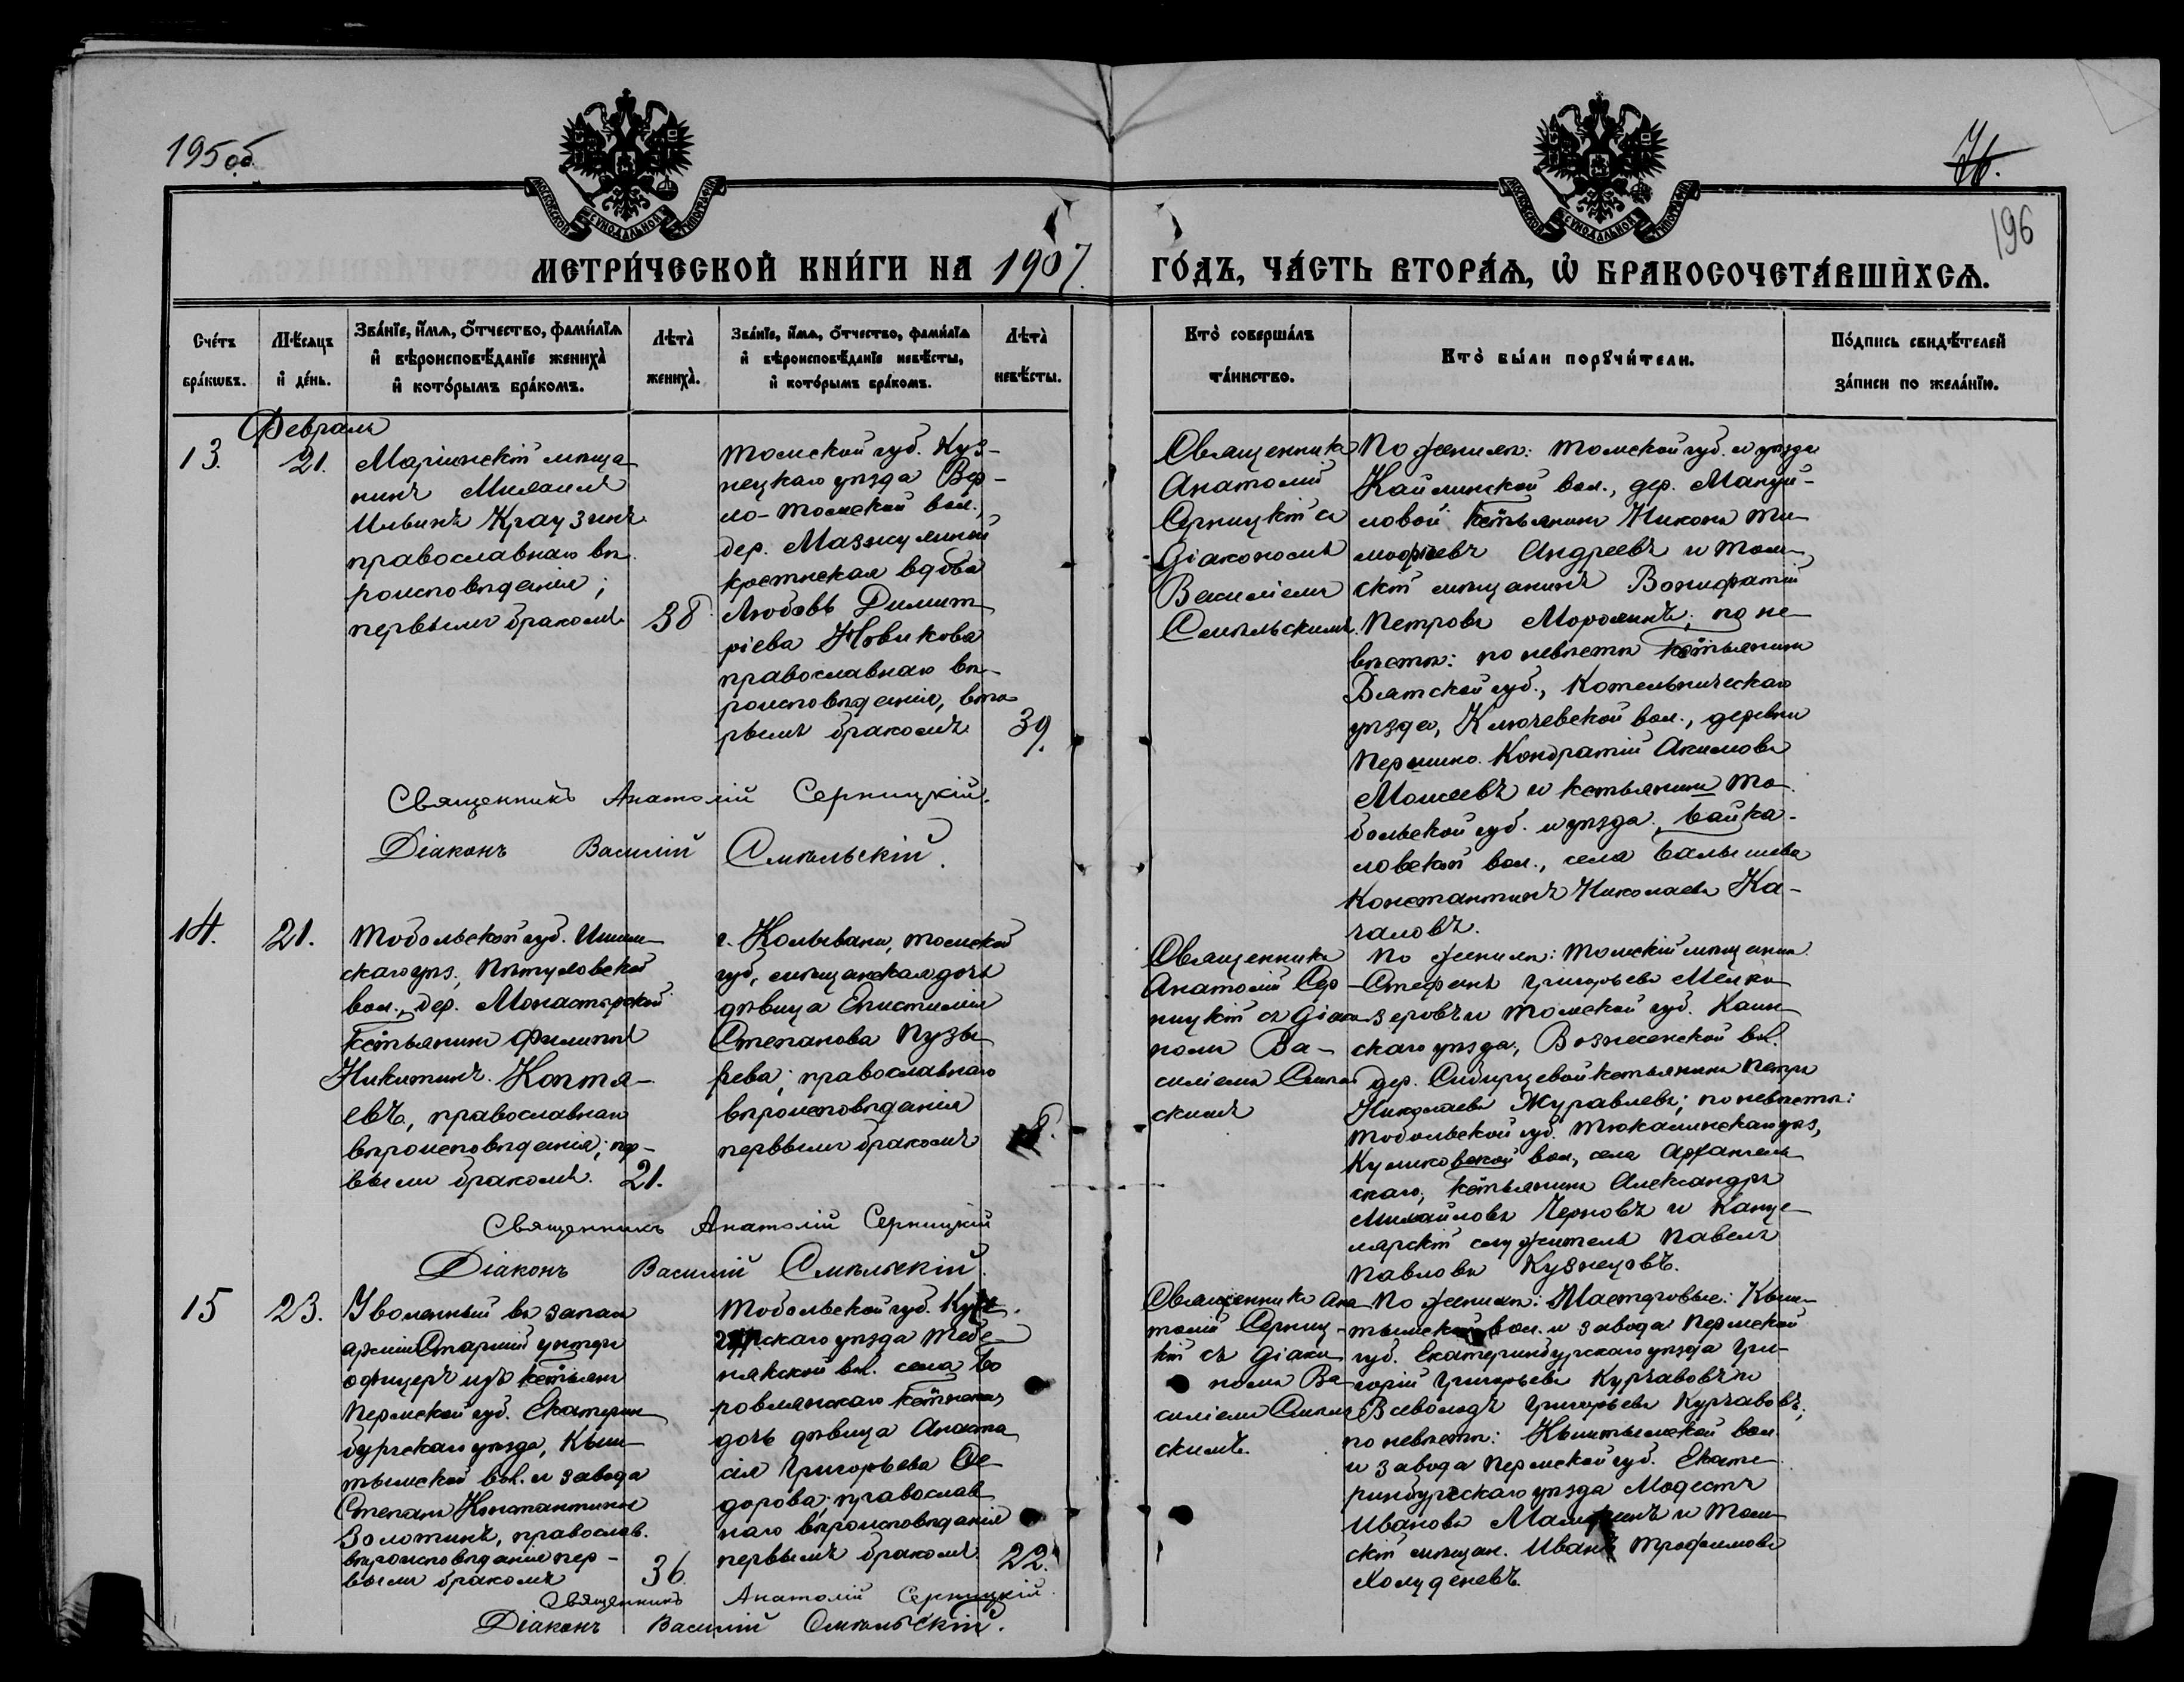 195об.
76.
196
МОСКОВСКОЙ СѴНОДАЛЬНОЙ ТИПОГРАФІИ
МОСКОВСКОЙ СѴНОДАЛЬНОЙ ТИПОГРАФІИ
МЕТРИ́ЧЕСКОЙ КНИ́ГИ НА 1907.
ГО́ДЪ, ЧА́СТЬ ВТОРА́Ѧ, Ѡ҆ БРАКОСОЧЕТА́ВШИХСѦ.
Сче́тъ
бра́кѡвъ.
Мѣ́сяцъ
и҆ де́нь.
Зва́нїе, и҆́мѧ, ѻ҆́тчество, фами́лїѧ
и҆ вѣроисповѣ́данїе жениха̀
и҆ кото́рымъ бра́комъ.
Лѣта̀
жениха̀.
Зва́нїе, и҆́мѧ, ѻ҆́тчество, фами́лїѧ
и҆ вѣроисповѣ́данїе невѣ́сты,
и҆ кото́рымъ бра́комъ.
Лѣта̀
невѣ́сты.
Кто̀ соверша́лъ
та́инство.
Кто̀ бы́ли порꙋчи́тели.
По́дпись свидѣ́телей
за́писи по жела́нїю.
Февраль
13.
21.
Маріинскій мѣща
нинъ Михаилъ
Ильинъ Краузинъ
православнаго вѣ
роисповѣданія;
первымъ бракомъ
38
Томской губ. Куз-
нецкаго уѣзда Вер-
хо-Томской вол.,
дер. Мазжулиной
крестьнская вдова
Любовь Димит
ріева Новикова
православнаго вѣ-
роисповѣданія, вто
рымъ бракомъ
39.
Священникъ
Анатолій
Серпицкій съ
діакономъ
Василіемъ
Смѣльскимъ.
По женихѣ: Томской губ. и уѣзда
Кайлинской вол., дер. Мануй-
ловой кстьянинъ Никонъ Ти
мофіевъ Андреевъ и Том
скій мѣщанинъ Вонифатій
Петровъ Морозинъ; по не
вѣстѣ: по невѣстѣ кстьянинъ
Вятской губ., Котельническаго
уѣзда, Ключевской вол., деревни
Першино Кондратій Акимовъ
Мошеевъ и кстьянинъ То
больской губ. и уѣзда, Байка-
ловской вол., села Балышева
Константинъ Николаевъ Ка-
чаловъ.
Священникъ Анатолій Серпицкій.
Діаконъ Василій Смѣльскій.
14.
21.
Тобольской губ. Ишим-
скаго уѣз., Пѣтуховской
вол., дер. Монастырской
кстьянинъ Филиппъ
Никитинъ Коптя-
евъ, православнаго
вѣроисповѣданія; пер-
вымъ бракомъ.
21.
г. Колывани, Томской
губ., мѣщанская дочь
дѣвица Епистимія
Степанова Пузы
рева; православнаго
вѣроисповѣданія
первымъ бракомъ
Священникъ
Анатолій Сер-
пицкій съ діако
номъ Ва-
силіемъ Смѣль
скимъ
По женихѣ: Томскій мѣщанин
Стефанъ Григорьевъ Мелко
зеровъ и Томской губ. Каин
скаго уѣзда, Вознесенской вол.
дер. Сибирцевой кстьянинъ Петръ
Николаевъ Журавлевъ; по невѣстѣ:
Тобольской губ. Тюкалинскаго уѣз,
Куликовской вол., села Архангель
скаго, кстьянинъ Александръ
Михайловъ Черновъ и Канце-
лярскій служитель Павелъ
Павловъ Кузнецовъ.
Священникъ Анатолій Серпицкій
Діаконъ Василій Смѣльскій.
15
23.
Уволенный въ запасъ
арміи Старшій унтеръ
офицеръ изъ кстьянъ
Пермской губ. Екатерин
бургскаго уѣзда, Кыш-
тымской вол. и завода
Степанъ Константиновъ
Золотинъ, православ.
вѣроисповѣданія пер-
вымъ бракомъ
36.
Тобольской губ. Кур
ганскаго уѣзда Тебе-
някской вол. села Бо
ровлянскаго кстьнская
дочь дѣвица Анаста
сія Григорьева Ѳе
дорова; православ
наго вѣроисповѣданія
первымъ бракомъ.
22.
Священникъ Ана
толій Серпиц-
кій съ діако
номъ Ва
силіемъ Смѣль
скимъ.
По женихѣ: Мастеровые: Кыш-
тымской вол. и завода Пермской
губ. Екатеринбургскаго уѣзда Гри-
горій Григорьевъ Курчавовъ и
Всеволодъ Григорьевъ Курчавовъ;
по невѣстѣ: Кыштымской вол.
и завода Пермской губ. Екате
ринбургскаго уѣзда Модестъ
Ивановъ и Том
скій мѣщан. Иванъ Трофимовъ
Холуденевъ.
Священникъ Анатолій Серпицкій.
Діаконъ Василій Смѣльскій.